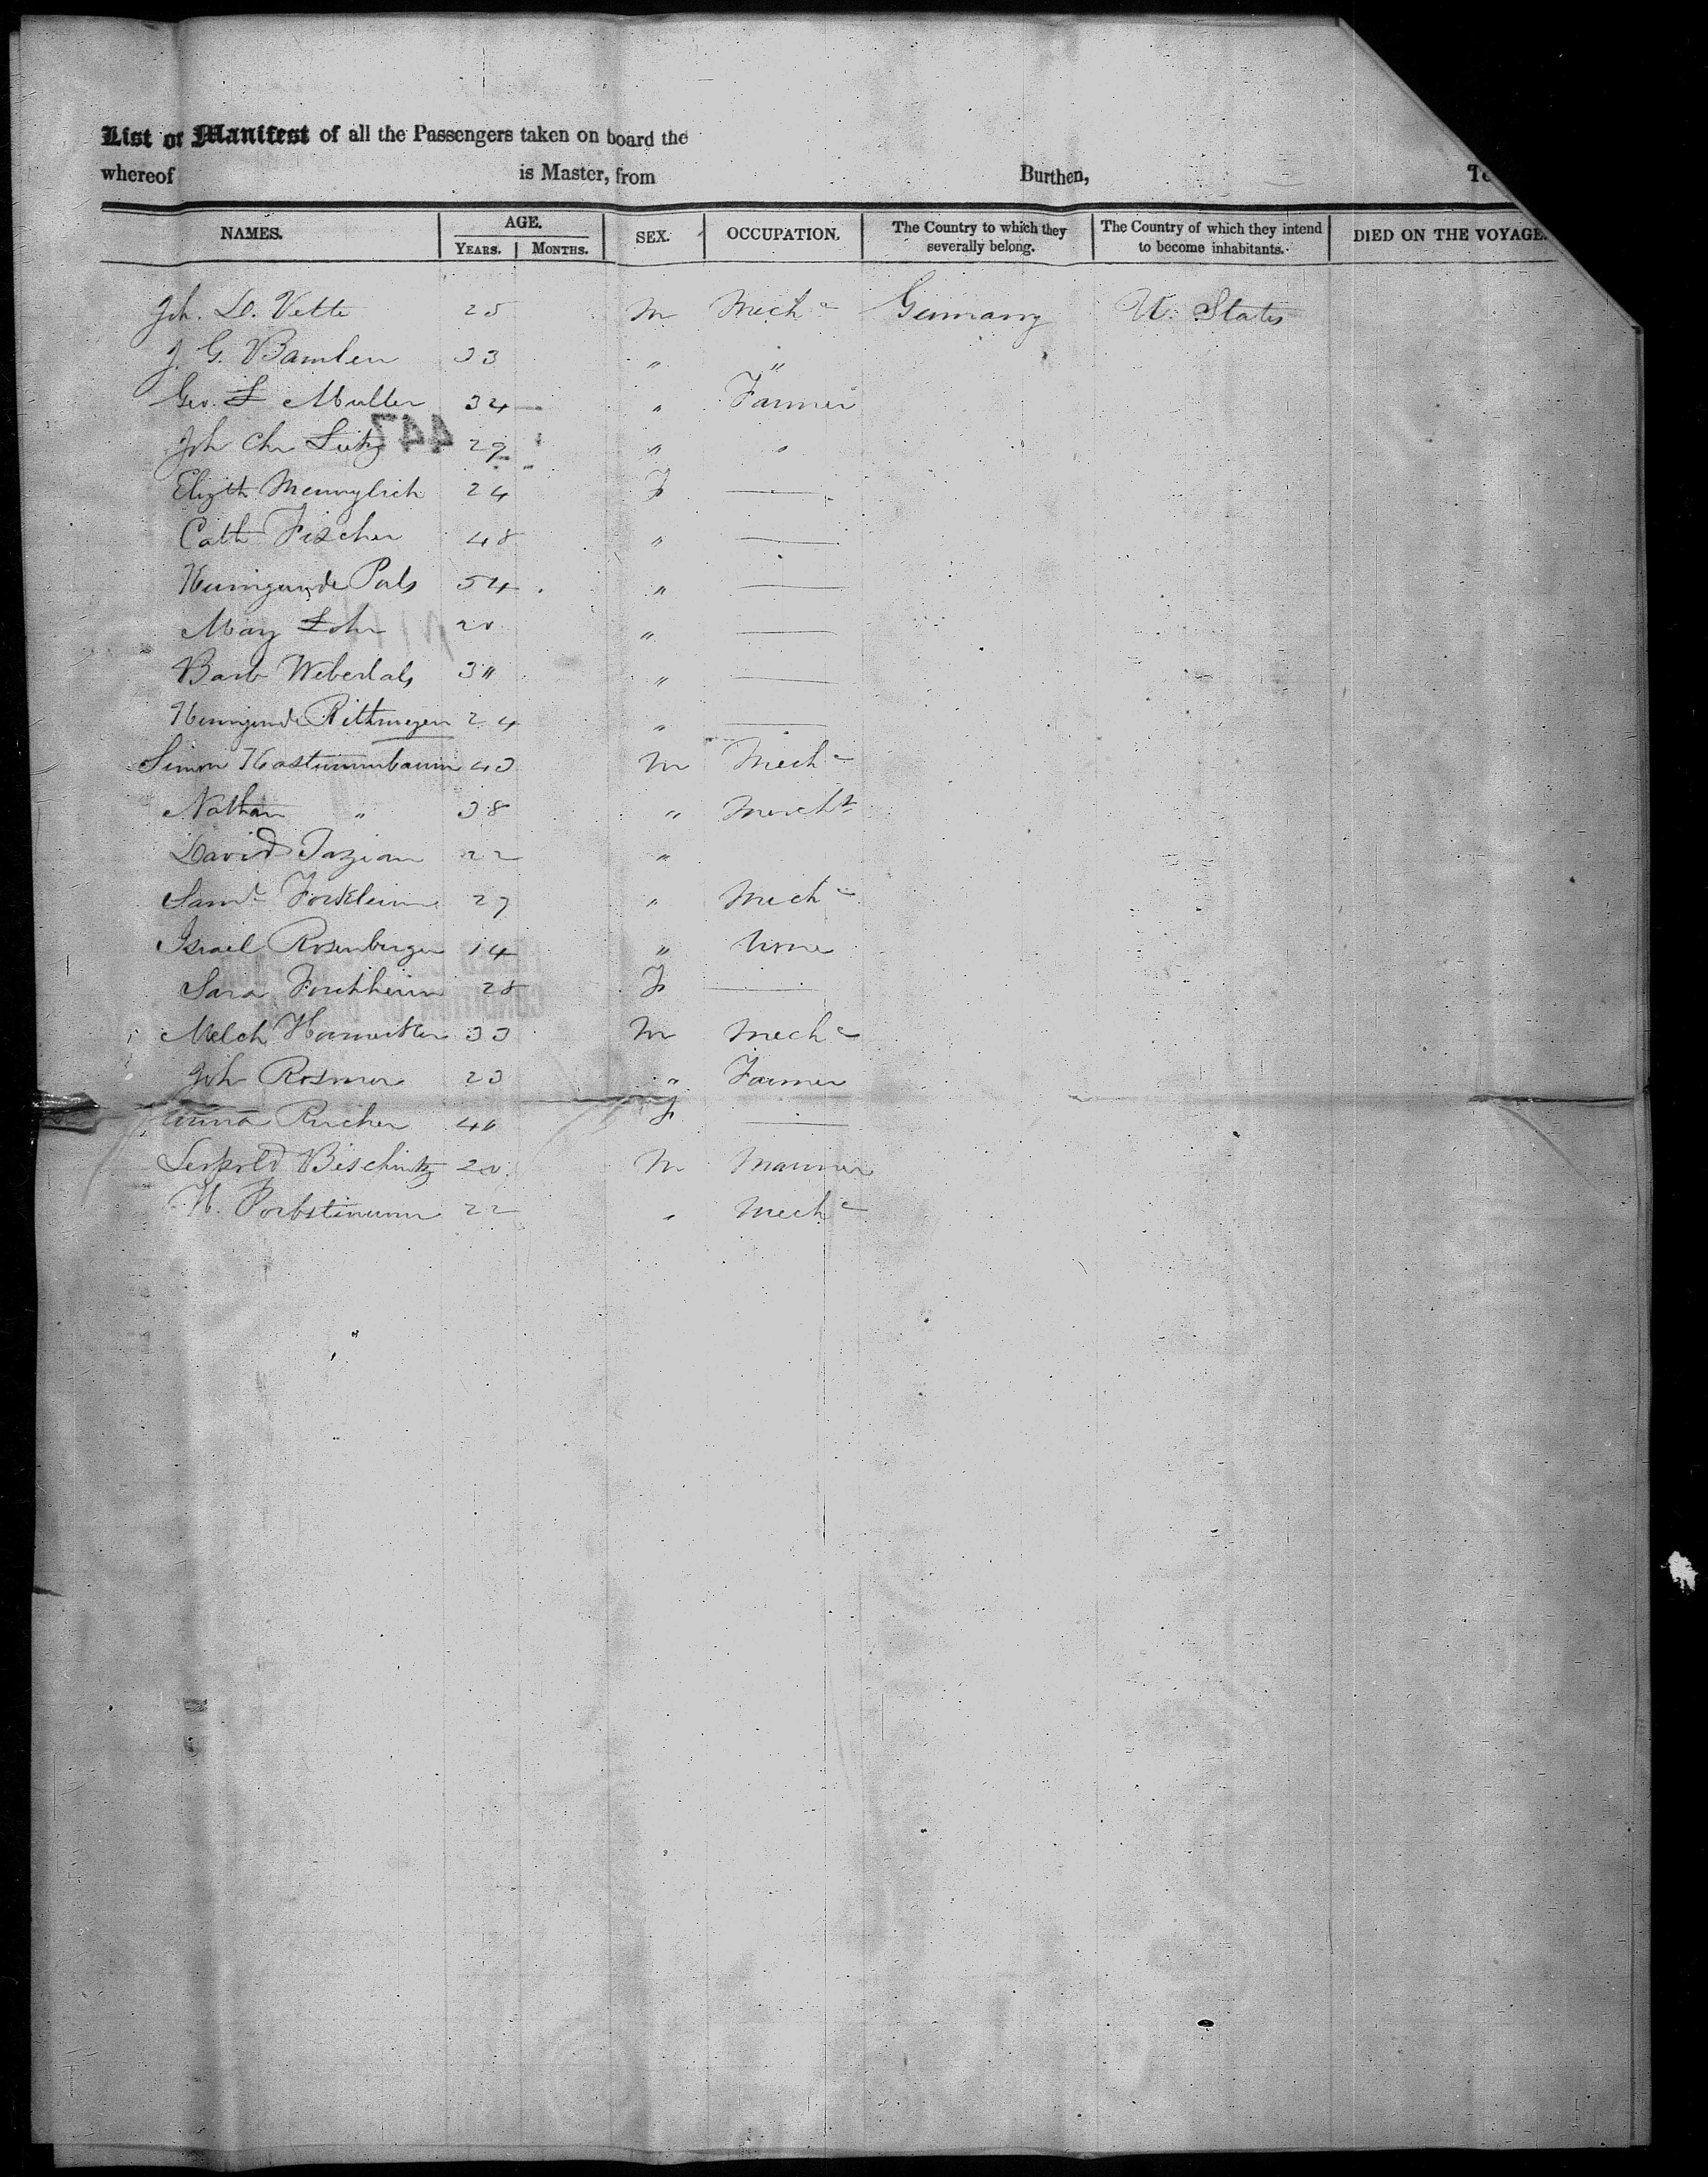 List or Manifest of all the Passengers taken on board the
whereof is Master, from Burthen,
NAMES. AGE. YEARS. MONTHS. SEX. OCCUPATION. The Country to which they severally belong. The Country of which they intend to become inhabitants. DIED ON THE VOYAGE.
Joh. D. Vette 25 M Mechc Germany U. States
J. G. Bamlen 33 " "
Geo. L Muller 34 " Farmer
447
Joh Chr Lutz 29 " "
Elizth 24 F —
Cath Fischer 48 " —
Kunigunde Pals 54 " —
Mary Lohr 20 " —
Barb 30 " —
Kunigunde Rittmayer 24 " —
Simon 43 M Mechc
Nathan " 38 " Mercht
David 22 "
Saml 27 " Mechc
Israel Rosenberger 14 " None
Sara Forchheim 28 F —
Melch 33 M Mechc
Joh Rosmer 23 " Farmer
Anna 40 F —
Leopold Bischintz 20 M Mariner
22 " Mechc